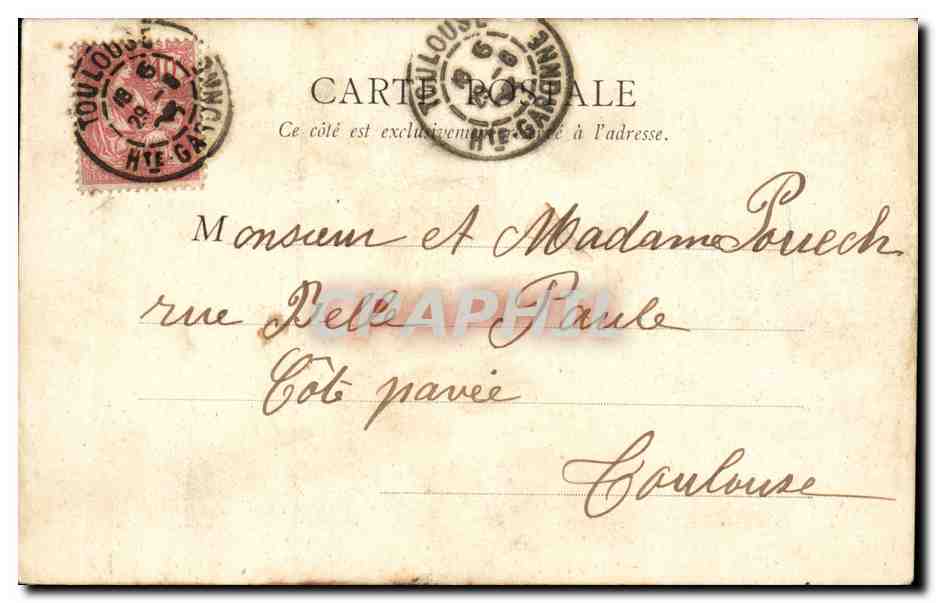 TOULOUSE
HTE-GARONNE
TOULOUSE
HTE-GARONNE
CARTE POSTALE
Ce côté est exclusivement réservé à l'adresse.
Monsieur et Madame Pouech
rue Belle Paule
Côte pavée
Toulouse
CPAPHIL